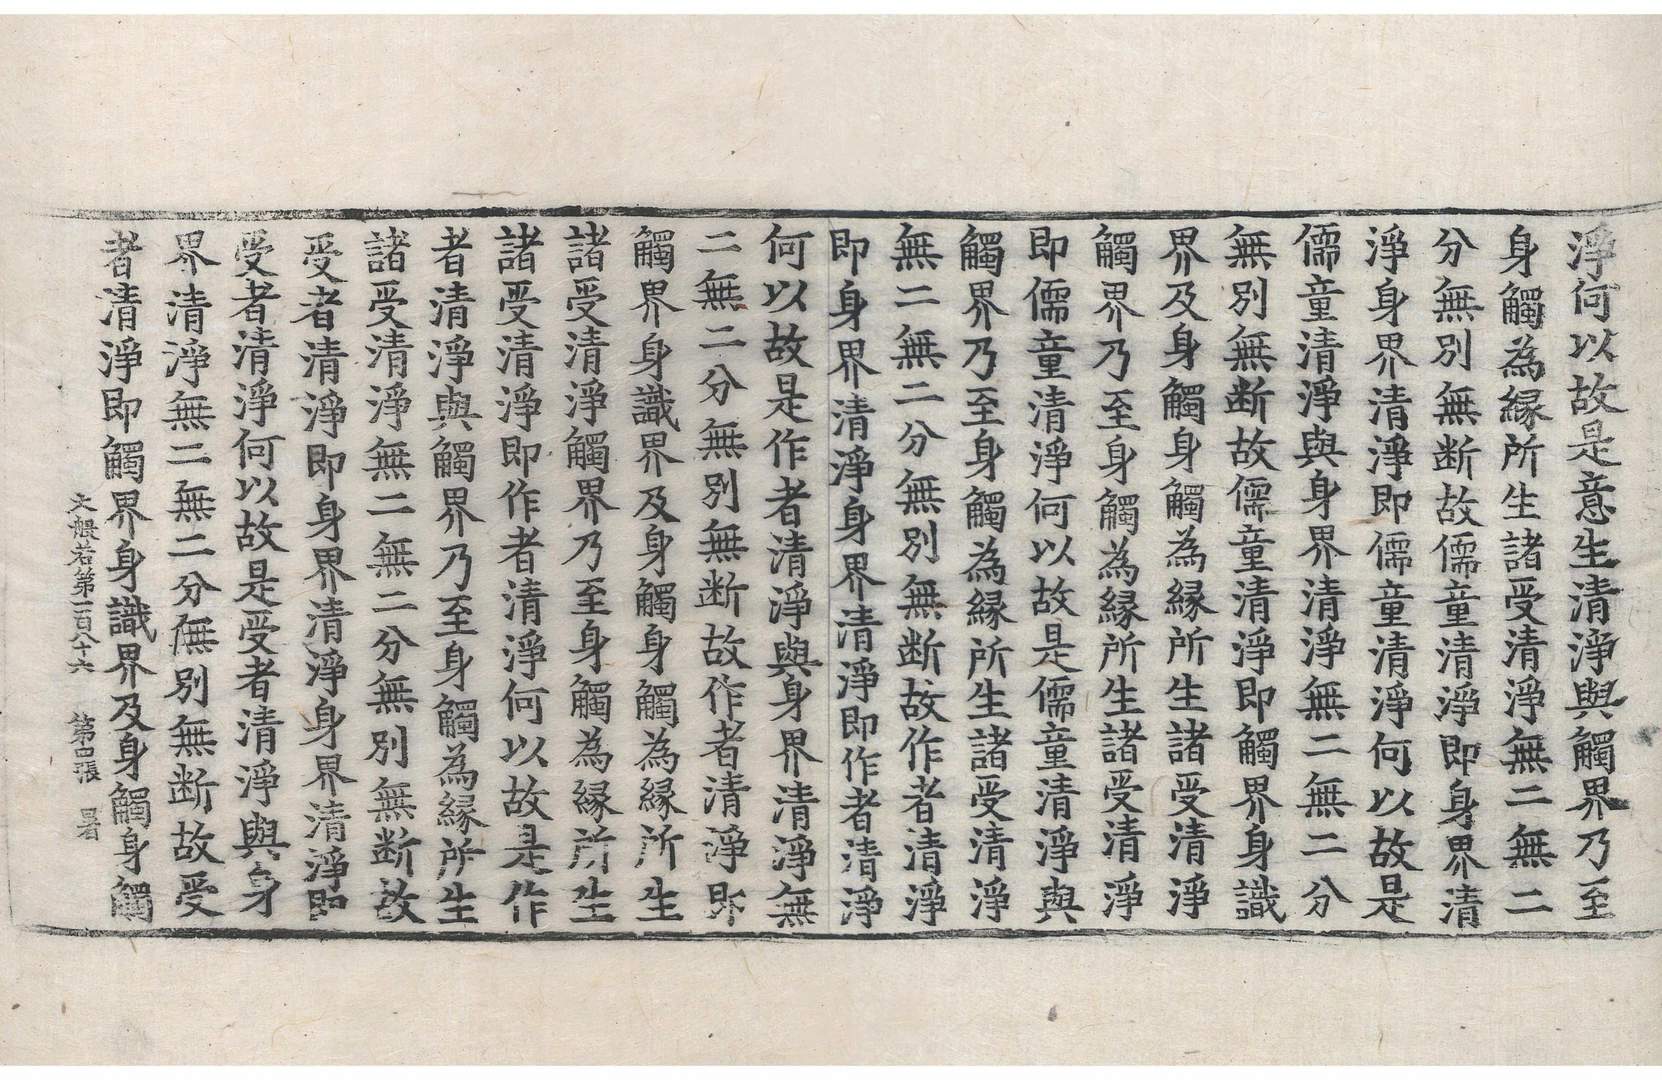 淨何以故是意生清淨與觸界乃至
身觸為縁所生諸受清淨無二無二
分無別無断故儒童清淨即身界清
淨身界清淨即儒童清淨何以故是
儒童清淨與身界清淨無二無二分
無別無断故儒童清淨即觸界身識
界及身觸身觸為縁所生諸受清淨
觸界乃至身觸為縁所生諸受清淨
即儒童清淨何以故是儒童清淨與
觸界乃至身觸為縁所生諸受清淨
無二無二分無別無断故作者清淨
即身界清淨身界清淨即作者清淨
何以故是作者清淨與身界清淨無
二無二分無別無断故作者清淨即
觸界身識界及身觸身觸為縁所生
諸受清淨觸界乃至身觸為縁所生
諸受清淨即作者清淨何以故是作
者清淨與觸界乃至身觸為縁所生
諸受清淨無二無二分無別無断故
受者清淨即身界清淨身界清淨即
受者清淨何以故是受者清淨與身
界清淨無二無二分無別無断故受
者清淨即觸界身識界及身觸身觸
大般若第一百八十六 第四張